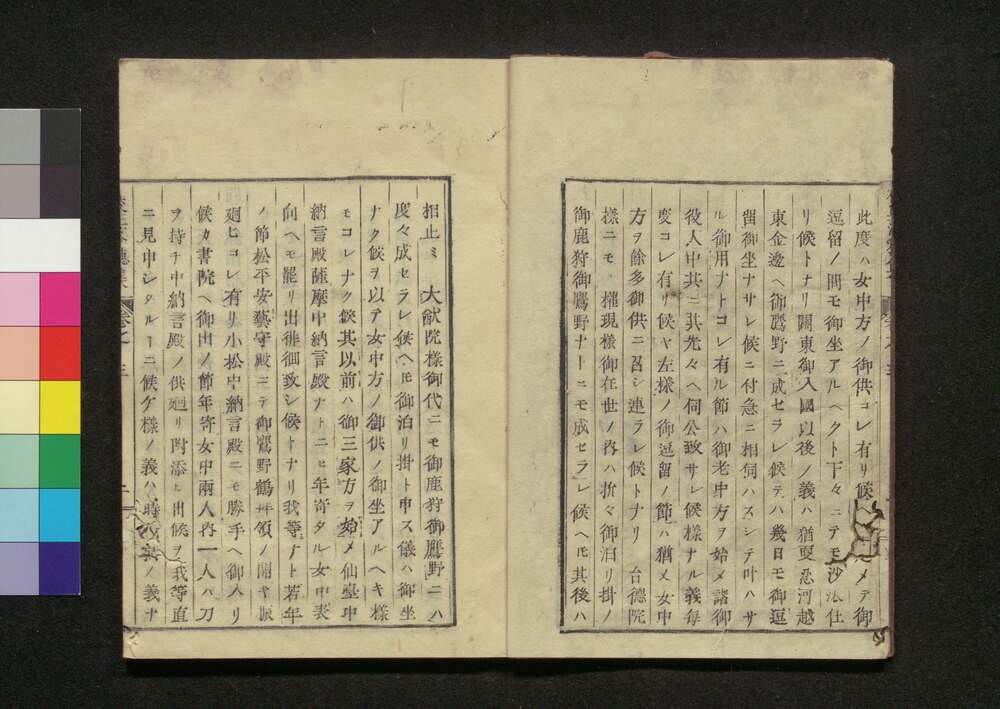 此度ハ女中方ノ御供コレ有リ候メテ御
逗留ノ間モ御坐アルヘクト下々ニテモ沙汰仕
リ候トナリ關東御入國以後ノ義ハ猶更忍河越
東金邊ヘ御鷹野ニ成セラレ候テハ幾日モ御逗
留御坐ナサレ候ニ付急ニ相伺ハスシテ叶ハサ
ル御用ナトコレ有ル節ハ御老中方ヲ始メ諸御
役人中其ニ其先々ヘ伺公致サレ候樣ナル義毎
度コレ有リ候ヤ左樣ノ御逗留ノ節ハ猶メ女中
方ヲ餘多御供ニ召シ連ラレ候トナリ 台德院
樣ニモ 權現樣御在世ノ內ハ折々御泊リ掛ノ
御鹿狩御鷹野ナトニモ成セラレ候ヘモ其後ハ
相止ミ 大猷院樣御代ニモ御鹿狩御鷹野ニハ
度々成セラレ候ヘモ御泊リ掛ト申ス儀ハ御坐
ナク候ヲ以テ女中方ノ御供ノ御坐アルヘキ樣
モコレナク候其以前ハ御三家方ヲ始メ仙臺中
納言殿薩摩中納言殿ナトニヒ年寄タル女中表
向ヘモ罷リ出徘徊致シ候トナリ我等ナト若年
ノ節松平安藝守殿ニテ御鷹野鶴拜領ノ開キ振
廻ヒコレ有リ小松中納言殿ニモ勝手ヘ御入リ
候カ書院ヘ御出ノ節年寄女中兩人內一人ハ刀
ヲ持チ中納言殿ノ供廻リ附添ヒ出候ヲ我等直
ニ見申シタルーニ候ケ樣ノ義ハ時代ノ義ナ